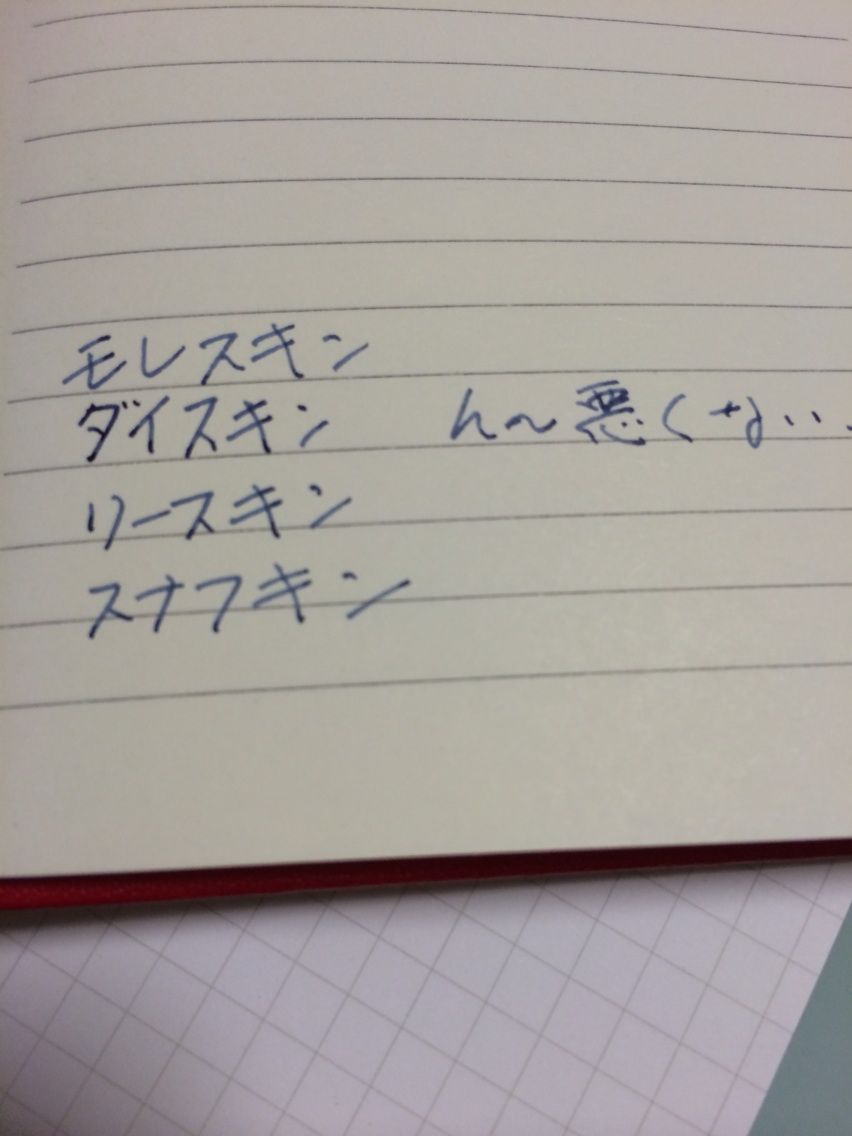 モレスキン
ダイスキン　ん〜悪くない.
リースキン
スナフキン